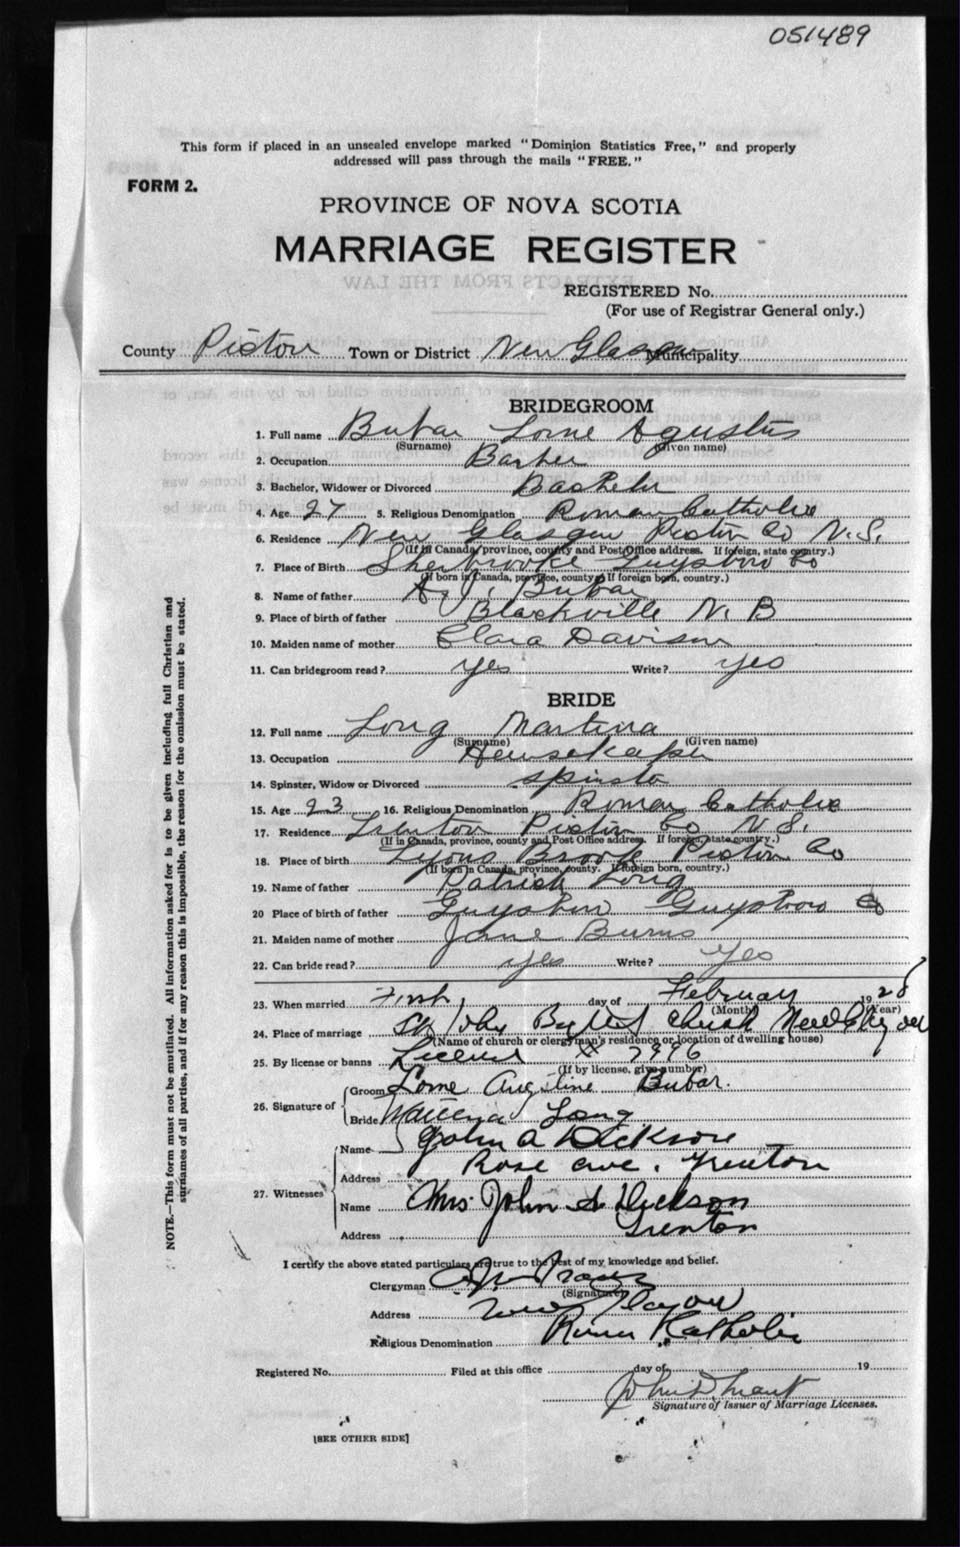 051489
This form if placed in an unsealed envelope marked "Dominion Statistics Free," and properly
addressed will pass through the mails "FREE."
FORM 2.
PROVINCE OF NOVA SCOTIA
MARRIAGE REGISTER
REGISTERED No.
(For use of Registrar General only.)
County Pictou Town or District New Glasgow Municipality
BRIDEGROOM
1. Full name Bubar Lorne Agustus
(Surname) (Given name)
2. Occupation Barber
3. Bachelor, Widower or Divorced Bachelor
4. Age 27 5. Religious Denomination Roman Catholic
6. Residence New Glasgow Pictou Co N.S.
(If in Canada, province, county and Post Office address. If foreign, state country.)
7. Place of Birth Sherbrooke Guysboro Co
(If born in Canada, province, county. If foreign born, country.)
8. Name of father A. J. Bubar
9. Place of birth of father Blackville N. B
10. Maiden name of mother Clara Davison
11. Can bridegroom read? yes Write? yes
BRIDE
12. Full name Long Martina
(Surname) (Given name)
13. Occupation Housekeeper
14. Spinster, Widow or Divorced spinster
15. Age 23 16. Religious Denomination Roman Catholic
17. Residence Trenton Pictou Co N. S.
(If in Canada, province, county and Post Office address. If foreign, state country.)
18. Place of birth Lyons Brook Pictou Co
(If born in Canada, province, county. If foreign born, country.)
19. Name of father Patrick Long
20 Place of birth of father Guysboro Guysboro Co
21. Maiden name of mother Jane Burns
22. Can bride read? yes Write? yes
23. When married First, day of February 1928
(Month) (Year)
24. Place of marriage St John Baptist Church New Glasgow
(Name of church or clergyman's residence or location of dwelling house)
25. By license or banns License # 7996
(If by license, give number)
26. Signature of
Groom Lorne Augustine Bubar.
Bride Long
27. Witnesses
Name John A Dickson
Address Rose ave. Trenton
Name Mrs John A Dickson
Address Trenton
I certify the above stated particulars are true to the best of my knowledge and belief.
Clergyman
(Signature)
Address New Glasgow
Religious Denomination Roman Katholic
Registered No. Filed at this office day of 19
Signature of Issuer of Marriage Licenses.
[SEE OTHER SIDE]
NOTE.—This form must not be mutilated. All information asked for is to be given including full Christian and
surnames of all parties, and if for any reason this is impossible, the reason for the omission must be stated.